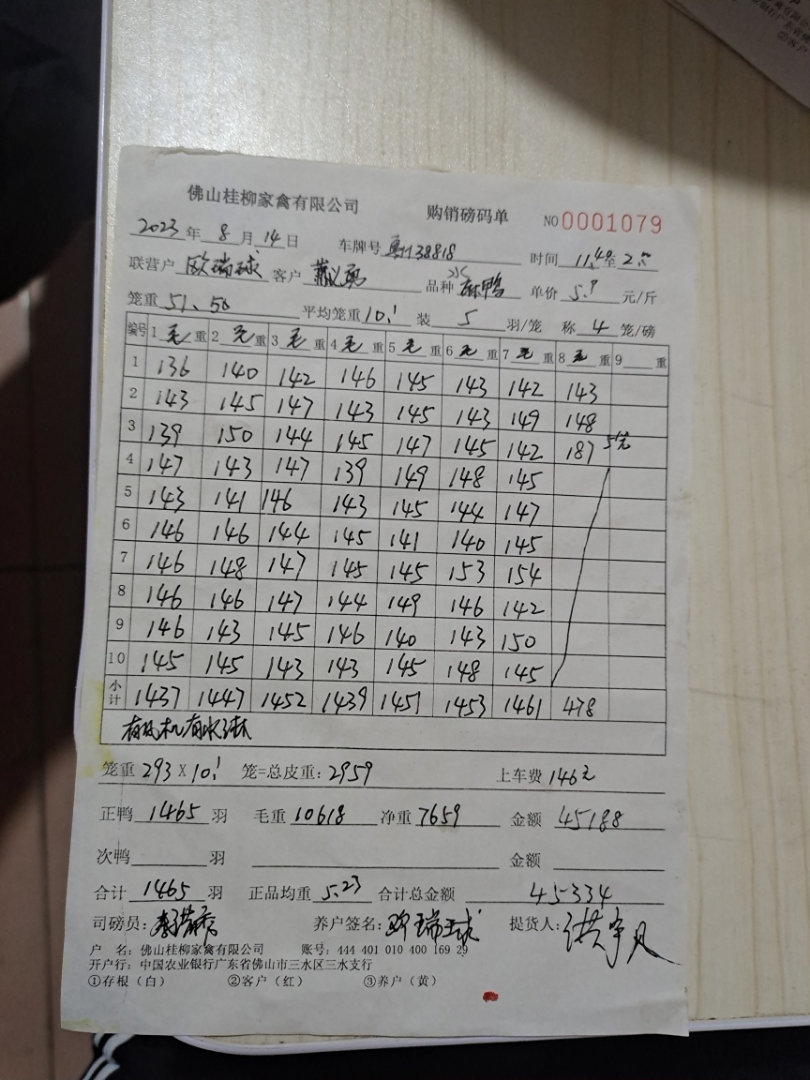 佛山桂柳家禽有限公司 购销磅码单 NO 0001079
2023 年 8 月 14 日 车牌号 38818 时间 11.40 至 2.
联营户 欧瑞球 客户 品种 麻鸭 单价 5.9 元/斤
笼重 51、50 平均笼重 10.1 装 5 羽/笼 称 4 笼/磅
编号 1 毛 重 2 毛 重 3 毛 重 4 毛 重 5 毛 重 6 毛 重 7 毛 重 8 毛 重 9 重
1 136 140 142 146 145 143 142 143
2 143 145 147 143 145 143 149 148
3 139 150 144 145 147 145 142 187 5笼
4 147 143 147 139 149 148 145
5 143 141 146 143 145 144 147
6 146 146 144 145 141 140 145
7 146 148 147 145 145 153 154
8 146 146 147 144 149 146 142
9 146 143 145 146 140 143 150
10 145 145 143 143 145 148 145
小计 1437 1447 1452 1439 1451 1453 1461 478
笼重 293 X 10.1 笼=总皮重: 2959 上车费 146元
正鸭 1465 羽 毛重 10618 净重 7659 金额 45188
次鸭 羽 金额
合计 1465 羽 正品均重 5.23 合计总金额 45334
司磅员: 养户签名: 欧瑞球 提货人: 洪宇凡
户 名: 佛山桂柳家禽有限公司 账号: 444 401 010 400 169 29
开户行: 中国农业银行广东省佛山市三水区三水支行
①存根（白） ②客户（红） ③养户（黄）